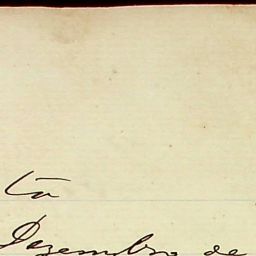 to
Dezembro de